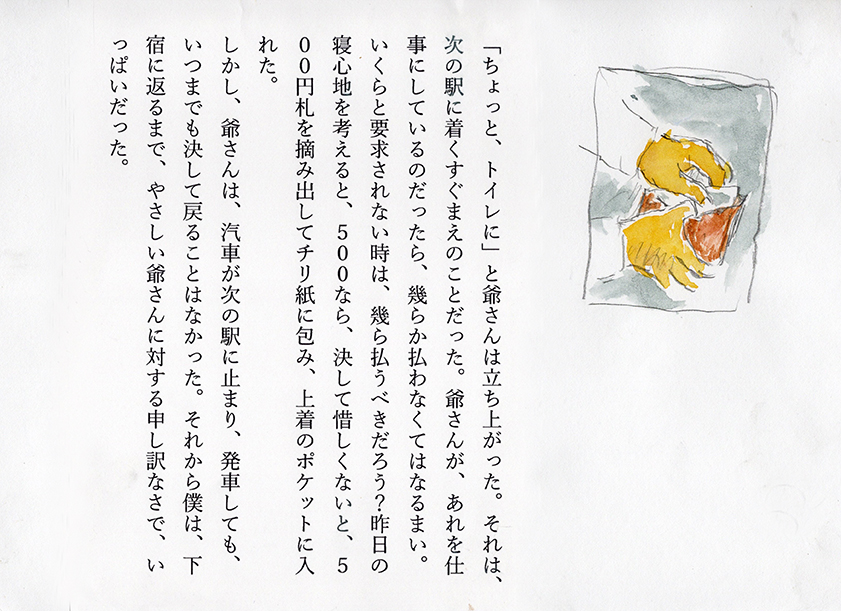 「ちょっと、トイレに」と爺さんは立ち上がった。それは、
次の駅に着くすぐまえのことだった。爺さんが、あれを仕
事にしているのだったら、幾らか払わなくてはなるまい。
いくらと要求されない時は、幾ら払うべきだろう？昨日の
寝心地を考えると、５００なら、決して惜しくないと、５
００円札を摘み出してチリ紙に包み、上着のポケットに入
れた。
しかし、爺さんは、汽車が次の駅に止まり、発車しても、
いつまでも決して戻ることはなかった。それから僕は、下
宿に返るまで、やさしい爺さんに対する申し訳なさで、い
っぱいだった。